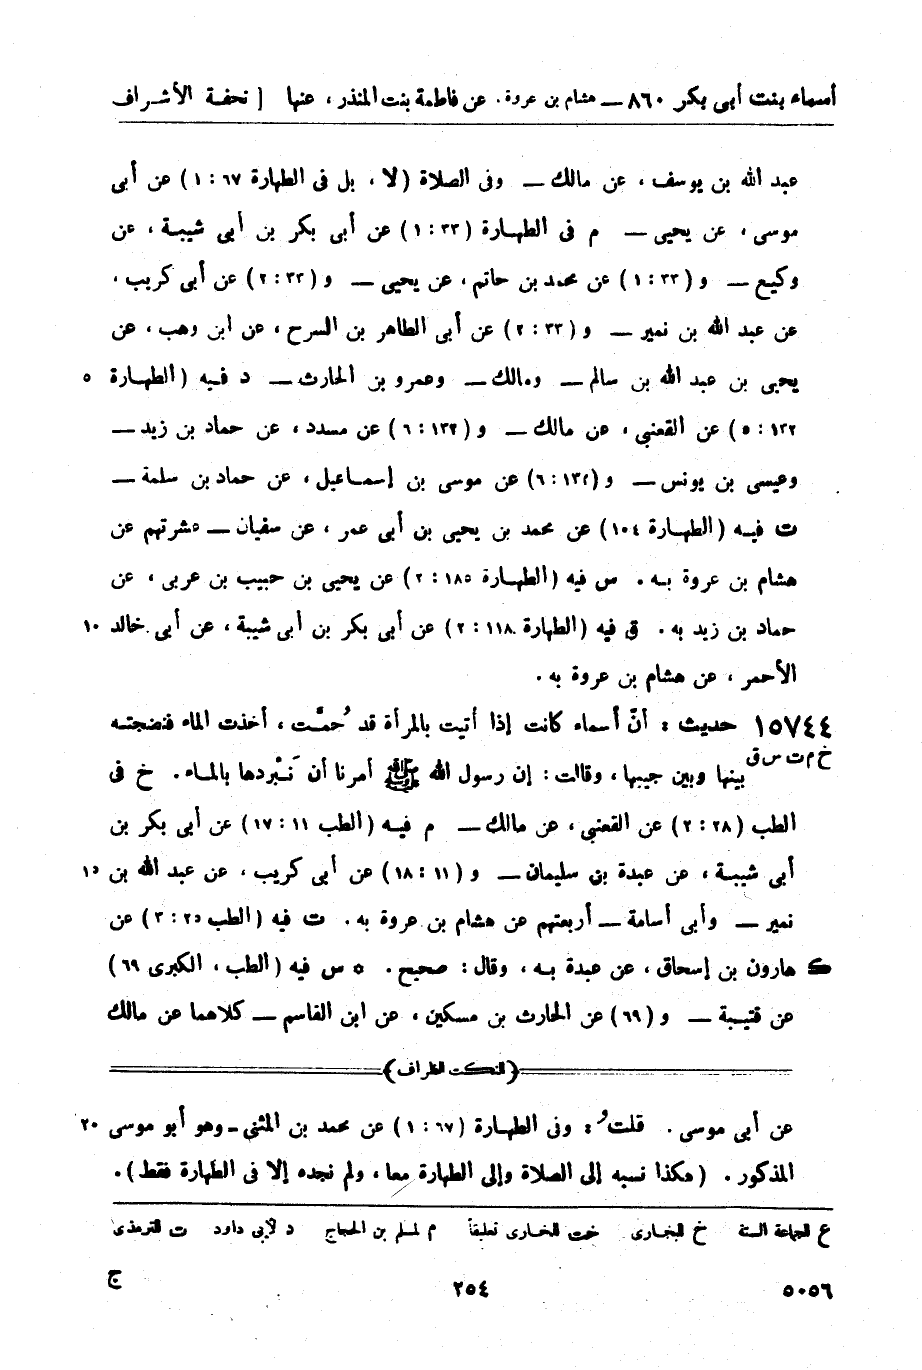 أسماء بنت أبى بكر ٨٦٠ ــ هشام بن عروة . عن فاطمة بنت المنذر ، عنها [ تحفة الأشراف
عبد الله بن يوسف ، عن مالك ــ وفى الصلاة (لا ، بل فى الطهارة ٦٧ : ١) عن أبى
موسى ، عن يحيى ــ م فى الطهارة (٣٣ : ١) عن أبى بكر بن أبى شيبة ، عن
وكيع ــ و (٣٣ : ١) عن محمد بن حاتم ، عن يحيى ــ و (٣٣ : ٢) عن أبى كريب ،
عن عبد الله بن نمير ــ و (٣٣ : ٢) عن أبى الطاهر بن السرح ، عن ابن وهب ، عن
يحيى بن عبد الله بن سالم ــ ومالك ــ وعمرو بن الحارث ــ د فيه (الطهارة ٥
١٣٢ : ٥) عن القعنبى ، عن مالك ــ و (١٣٢ : ٦) عن مسدد ، عن حماد بن زيد ــ
وعيسى بن يونس ــ و (١٣٢ : ٦) عن موسى بن إسماعيل ، عن حماد بن سلمة ــ
ت فيه (الطهارة ١٠٤) عن محمد بن يحيى بن أبى عمر ، عن سفيان ــ عشرتهم عن
هشام بن عروة به . س فيه (الطهارة ١٨٥ : ٢) عن يحيى بن حبيب بن عربى ، عن
حماد بن زيد به . ق فيه (الطهارة ١١٨ : ٢) عن أبى بكر بن أبى شيبة ، عن أبى خالد ١٠
الأحمر ، عن هشام بن عروة به .
١٥٧٤٤ حديث : أنّ أسماء كانت إذا أتيت بالمرأة قد حُمَّت ، أخذت الماء فنضجته
خ م ت س ق بينها وبين جيبها ، وقالت : إن رسول الله ﷺ أمرنا أن نَبْردها بالماء . خ فى
الطب (٢٨ : ٢) عن القعنبى ، عن مالك ــ م فيه (الطب ١١ : ١٧) عن أبى بكر بن
أبى شيبة ، عن عبدة بن سليمان ــ و (١١ : ١٨) عن أبى كريب ، عن عبد الله بن ١٥
نمير ــ وأبى أسامة ــ أربعتهم عن هشام بن عروة به . ت فيه (الطب ٢٥ : ٣) عن
ك هارون بن إسحاق ، عن عبدة به ، وقال : صحيح . ٥ س فيه (الطب ، الكبرى ٦٩)
عن قتيبة ــ و (٦٩) عن الحارث بن مسكين ، عن ابن القاسم ــ كلاهما عن مالك
(النكت الظراف)
عن أبى موسى . قلتُ : وفى الطهارة (٦٧ : ١) عن محمد بن المثنى ــ وهو أبو موسى ٢٠
المذكور . (هكذا نسبه إلى الصلاة وإلى الطهارة معا ، ولم نجده إلا فى الطهارة فقط) .
ع للجماعة الستة خ للبخارى خت للبخارى تعليقاً م لمسلم بن الحجاج د لأبى داود ت للترمذى
٥٠٥٦ ٢٥٤ ج